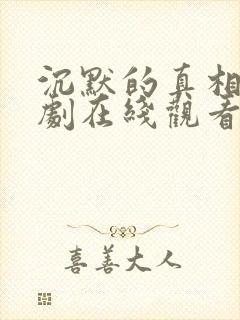 沉默的真相
劇在綫觀看
喜善大人